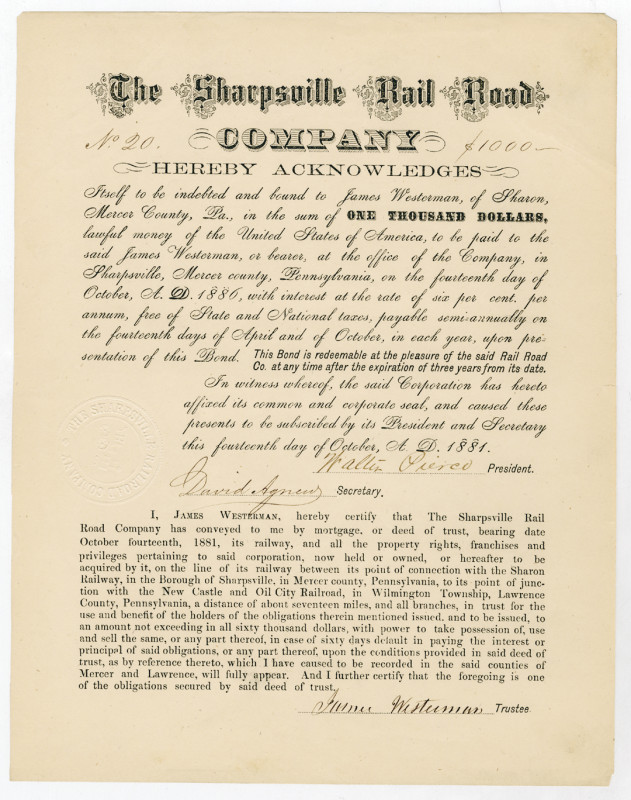 The Sharpsville Rail Road
No 20. COMPANY $1000-
HEREBY ACKNOWLEDGES
Itself to be indebted and bound to James Westerman, of Sharon,
Mercer County, Pa., in the sum of ONE THOUSAND DOLLARS,
lawful money of the United States of America, to be paid to the
said James Westerman, or bearer, at the office of the Company, in
Sharpsville, Mercer county, Pennsylvania, on the fourteenth day of
October, A. D. 1886, with interest at the rate of six per cent. per
annum, free of State and National taxes, payable semi-annually on
the fourteenth days of April and of October, in each year, upon pre-
sentation of this Bond. This Bond is redeemable at the pleasure of the said Rail Road
Co. at any time after the expiration of three years from its date.
In witness whereof, the said Corporation has hereto
affixed its common and corporate seal, and caused these
presents to be subscribed by its President and Secretary
this fourteenth day of October, A. D. 1881.
Walter Pierce President.
David Agnew Secretary.
I, JAMES WESTERMAN, hereby certify that The Sharpsville Rail
Road Company has conveyed to me by mortgage, or deed of trust, bearing date
October fourteenth, 1881, its railway, and all the property rights, franchises and
privileges pertaining to said corporation, now held or owned, or hereafter to be
acquired by it, on the line of its railway between its point of connection with the Sharon
Railway, in the Borough of Sharpsville, in Mercer county, Pennsylvania, to its point of junc-
tion with the New Castle and Oil City Railroad, in Wilmington Township, Lawrence
County, Pennsylvania, a distance of about seventeen miles, and all branches, in trust for the
use and benefit of the holders of the obligations therein mentioned issued, and to be issued, to
an amount not exceeding in all sixty thousand dollars, with power to take possession of, use
and sell the same, or any part thereof, in case of sixty days default in paying the interest or
principal of said obligations, or any part thereof, upon the conditions provided in said deed of
trust, as by reference thereto, which I have caused to be recorded in the said counties of
Mercer and Lawrence, will fully appear. And I further certify that the foregoing is one
of the obligations secured by said deed of trust,
James Westerman Trustee.